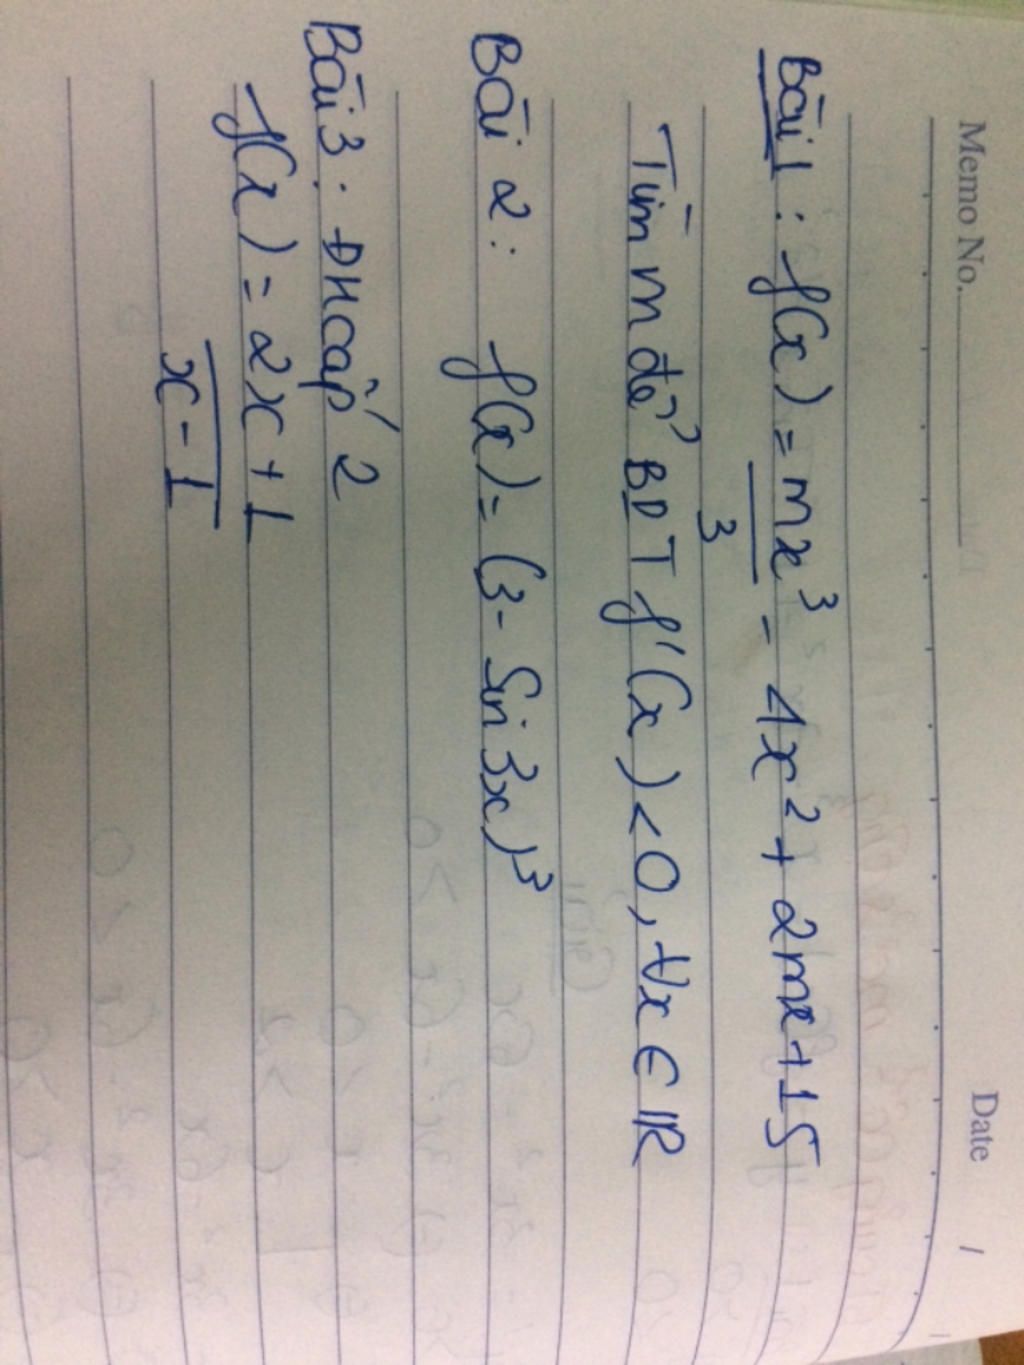 Memo No. Date / /
Bài 1 : f(x) = mx³/3 - 4x² + 2mx + 15
Tìm m để BDT f'(x) < 0, ∀x ∈ ℝ
Bài 2 : f(x) = (3 - Sin 3x)³
Bài 3 : ĐH cấp 2
f(x) = 2x + 1
x - 1